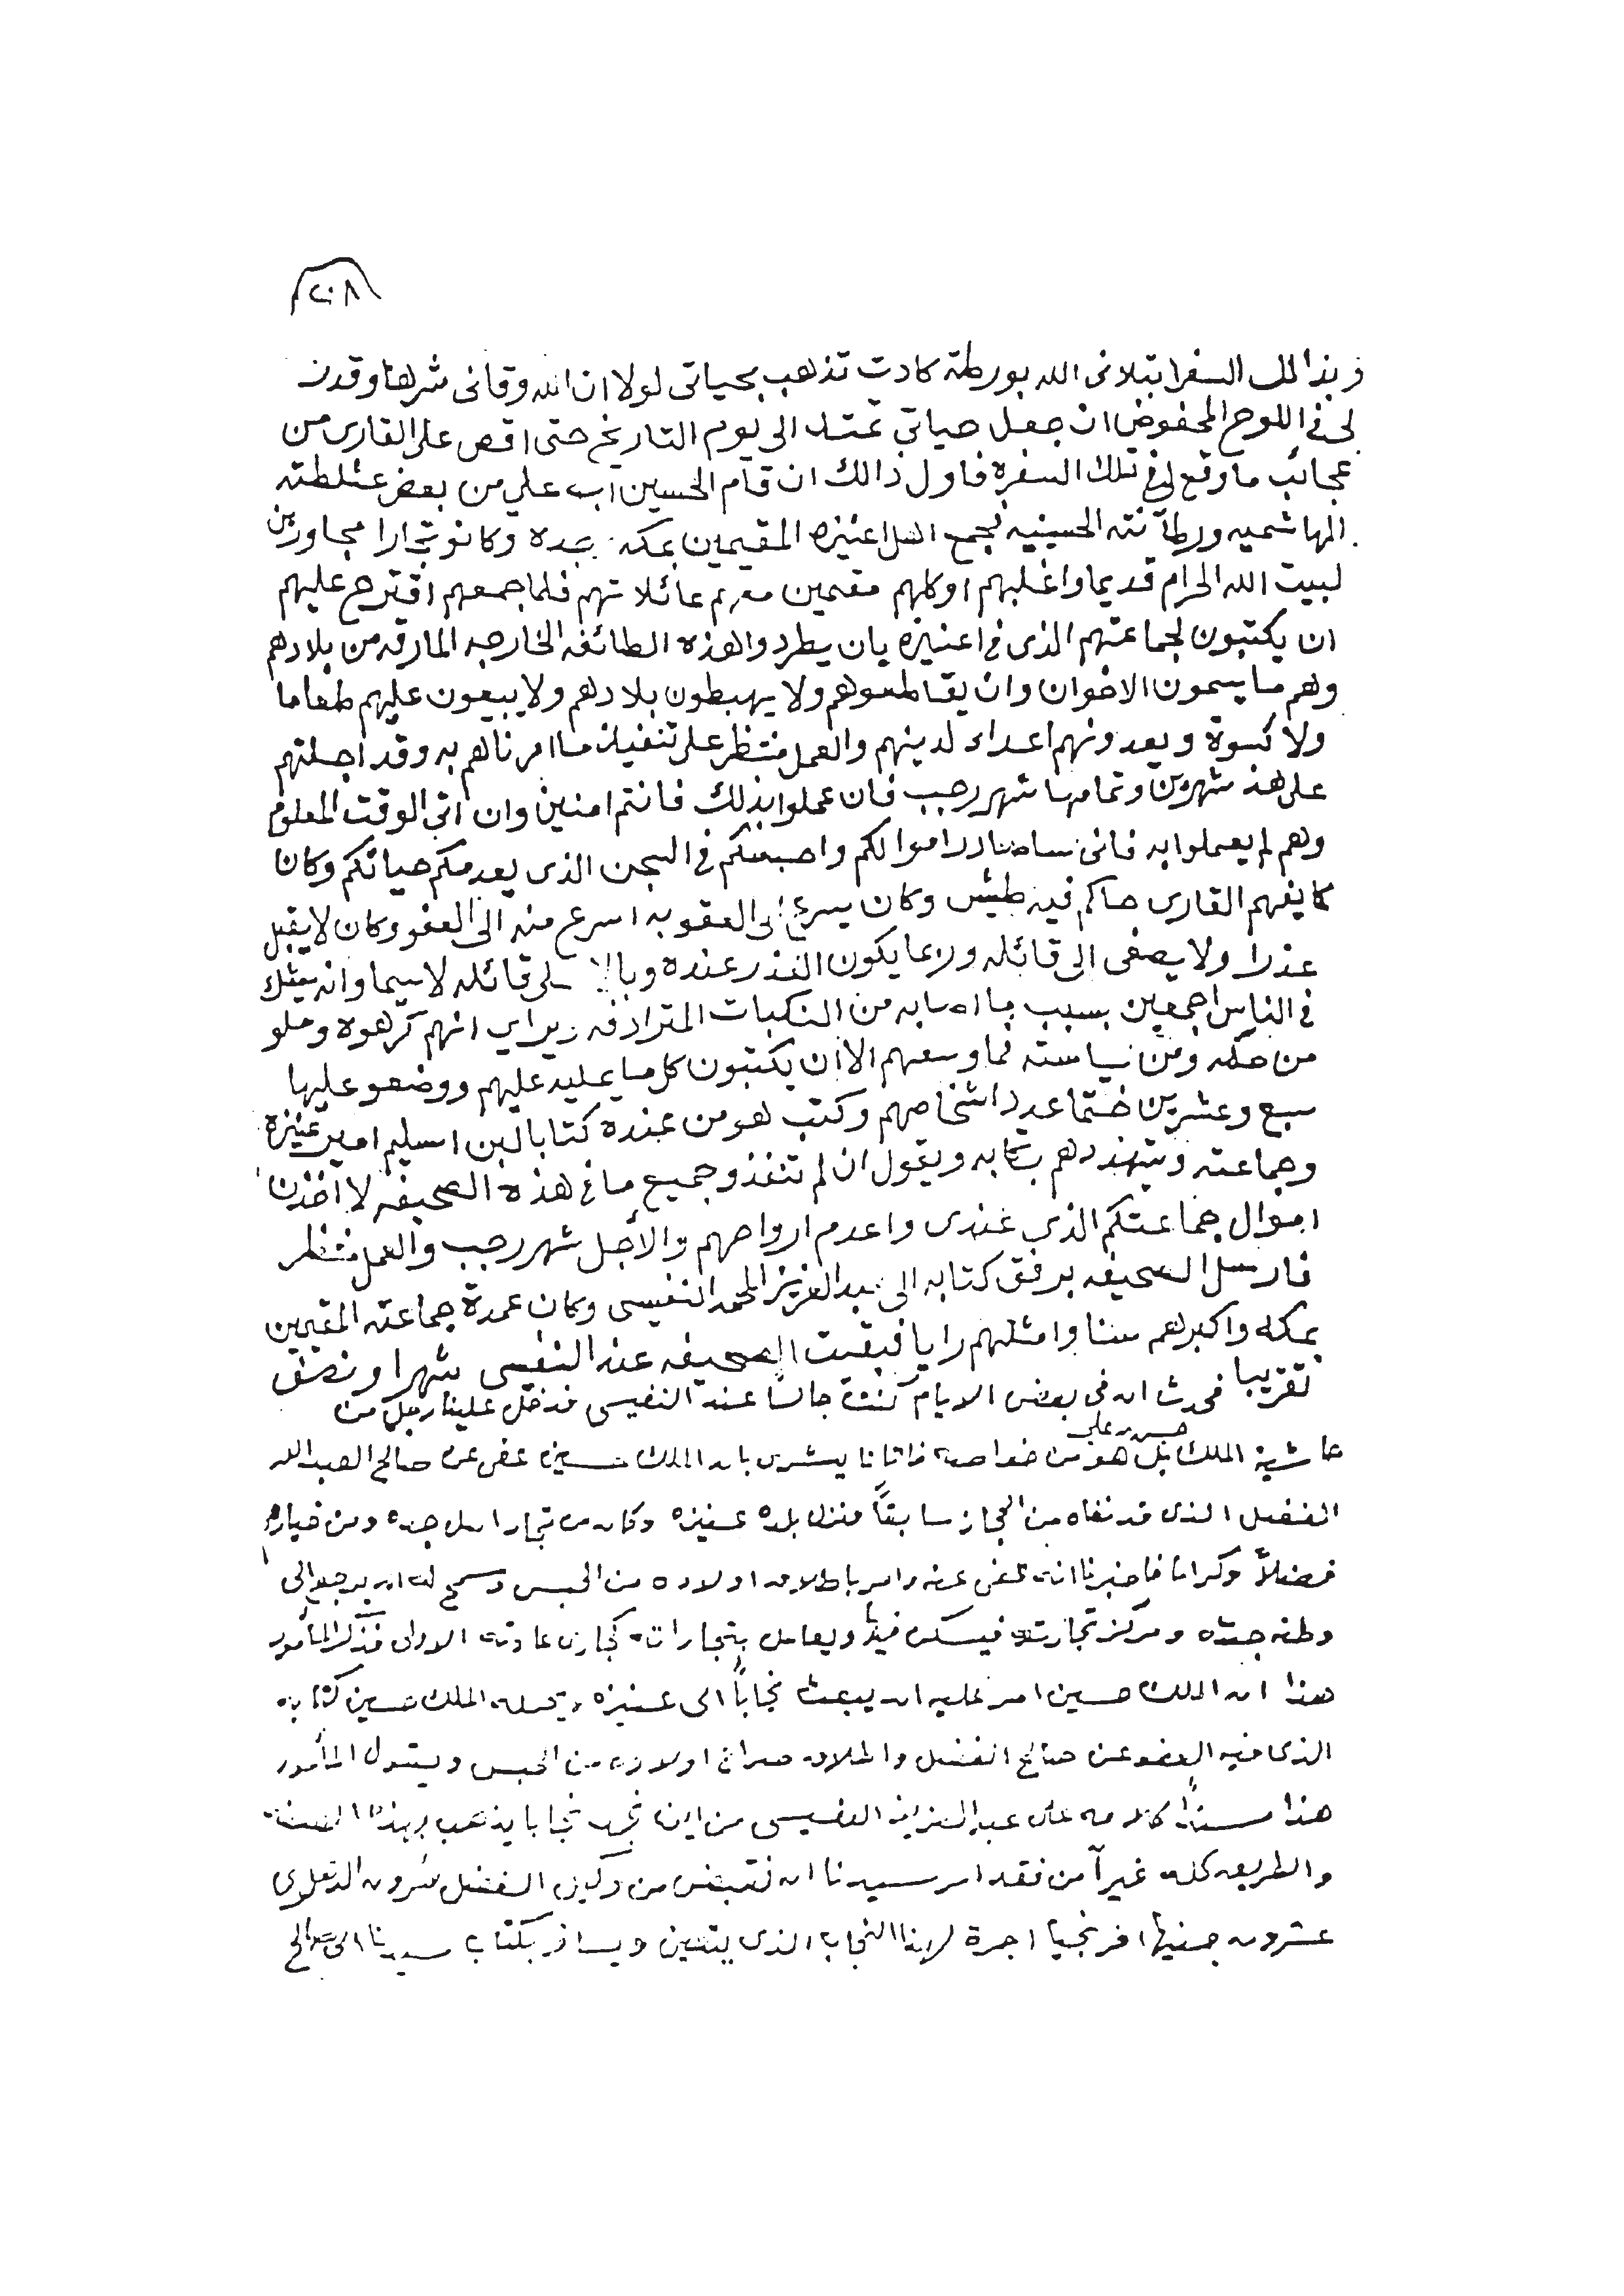 ٢٠٨
وبذالك السفر ابتلانى الله بورطة كادت تذهب بحياتى لولا ان الله وقانى شرها وقدر
لى فى اللوح المحفوض ان جعل حياتي تمتد الى يوم التاريخ حتى اقص على القارى من
عجائب ما وقع لي في تلك السفره فاول ذالك ان قام الحسين اب علي من بعض غشلطته
الهاشميه ورطآنته الحسينيه فجمع اهل اعنيزه المقيمين بمكه بجده وكانو تجارا مجاورين
لبيت الله الحرام قديما واغلبهم اوكلهم مقيمين معهم عائلاتهم فلما جمعهم اقترح عليهم
ان يكتبون لجماعتهم الذى فى اعنيزه بان يطردوا هذه الطائفه الخارجه المارقه من بلادهم
وهم ما يسمون الاخوان وان يقاطعوهم ولا يهبطون بلادهم ولا يبيعون عليهم طعاما
ولا كسوة ويعدونهم اعداء لدينهم والعمل منتظر على تنفيذ ما امرناهم به وقد اجلتهم
على هذ شهرين وتمامها شهر رجب فان عملوا بذلك فانتم امنين وان اتى الوقت المعلوم
وهم لم يعملوا به فانى ساصادر اموالكم واحبسكم فى السجن الذى يعدمكم حياتكم وكان
كما يفهم القارى حاكم فيه طيش وكان يسرع الى العقوبه اسرع منه الى العفو وكان لا يقبل
عذرا ولا يصغى الى قائله وربما يكون العذر عنده وبالا على قائله لاسيما وانه يشك
فى الناس اجمعين بسبب ما اصابه من النكبات المترادفه ويراي انهم كرهوه وملو
من حكمه ومن سياسته فما وسعهم الا ان يكتبون كل ما يمليه عليهم ووضعو عليها
سبع وعشرين ختما عدد اشخاصهم وكتب هو من عنده كتابا لبن اسليم امير عنيزه
وجماعته ويتهددهم بكتابه ويقول ان لم تنفذو جميع ما فى هذه الصحيفه لا اخذن
اموال جماعتكم الذى عندى واعدم ارواحهم والأجل شهر رجب والعمل منتظر
فارسل الصحيفه برفق كتابه الى عبدالعزيز المحمد النفيسى وكان عمدة جماعته المقيمين
بمكه واكبرهم سنا وامثلهم رايا فبقيت الصحيفه عند النفيسى شهرا ونصف
تقريبا فحدث انه فى بعض الايام كنت جالسا عند النفيسى فدخل علينا رجل من
حاشية الملك حسين بن علي بل هو من خواصه فاتانا يبشرى بان الملك حسين عفى عن صالح العبدالله
الفضل الذى قد نفاه من الحجاز سابقاً فنزل بلده عنيزه وكان من تجار اهل جده ومن خيارهم
فضلاً وكراما فاخبرنا انه عفى عنه وامر باطلاق اولاده من الحبس وسمح له ان يرجع الى
وطنه جده ومركز تجارته فيسكن فيها ويعامل بتجاراته كجارى عادته الاولى فذكر المأمور
هذا ان الملك حسين امر عليه ان يبعث نجاباً الى عنيزه ويحمله الملك حسين كتابه
الذى فيه العفو عن صالح الفضل واطلاق سراح اولاده من الحبس ويقول المأمور
هذا كلامه على عبدالعزيز النفيسى من اين نجد نجابا يذهب بهذا
والطريق كله غير آمن فقد امر سيدنا ان نقبض من وكيل الفضل
عشرون جنيها افرنجيا اجرة لهذا النجاب الذى يتعين ويسافر بكتاب سيدنا الى صالح